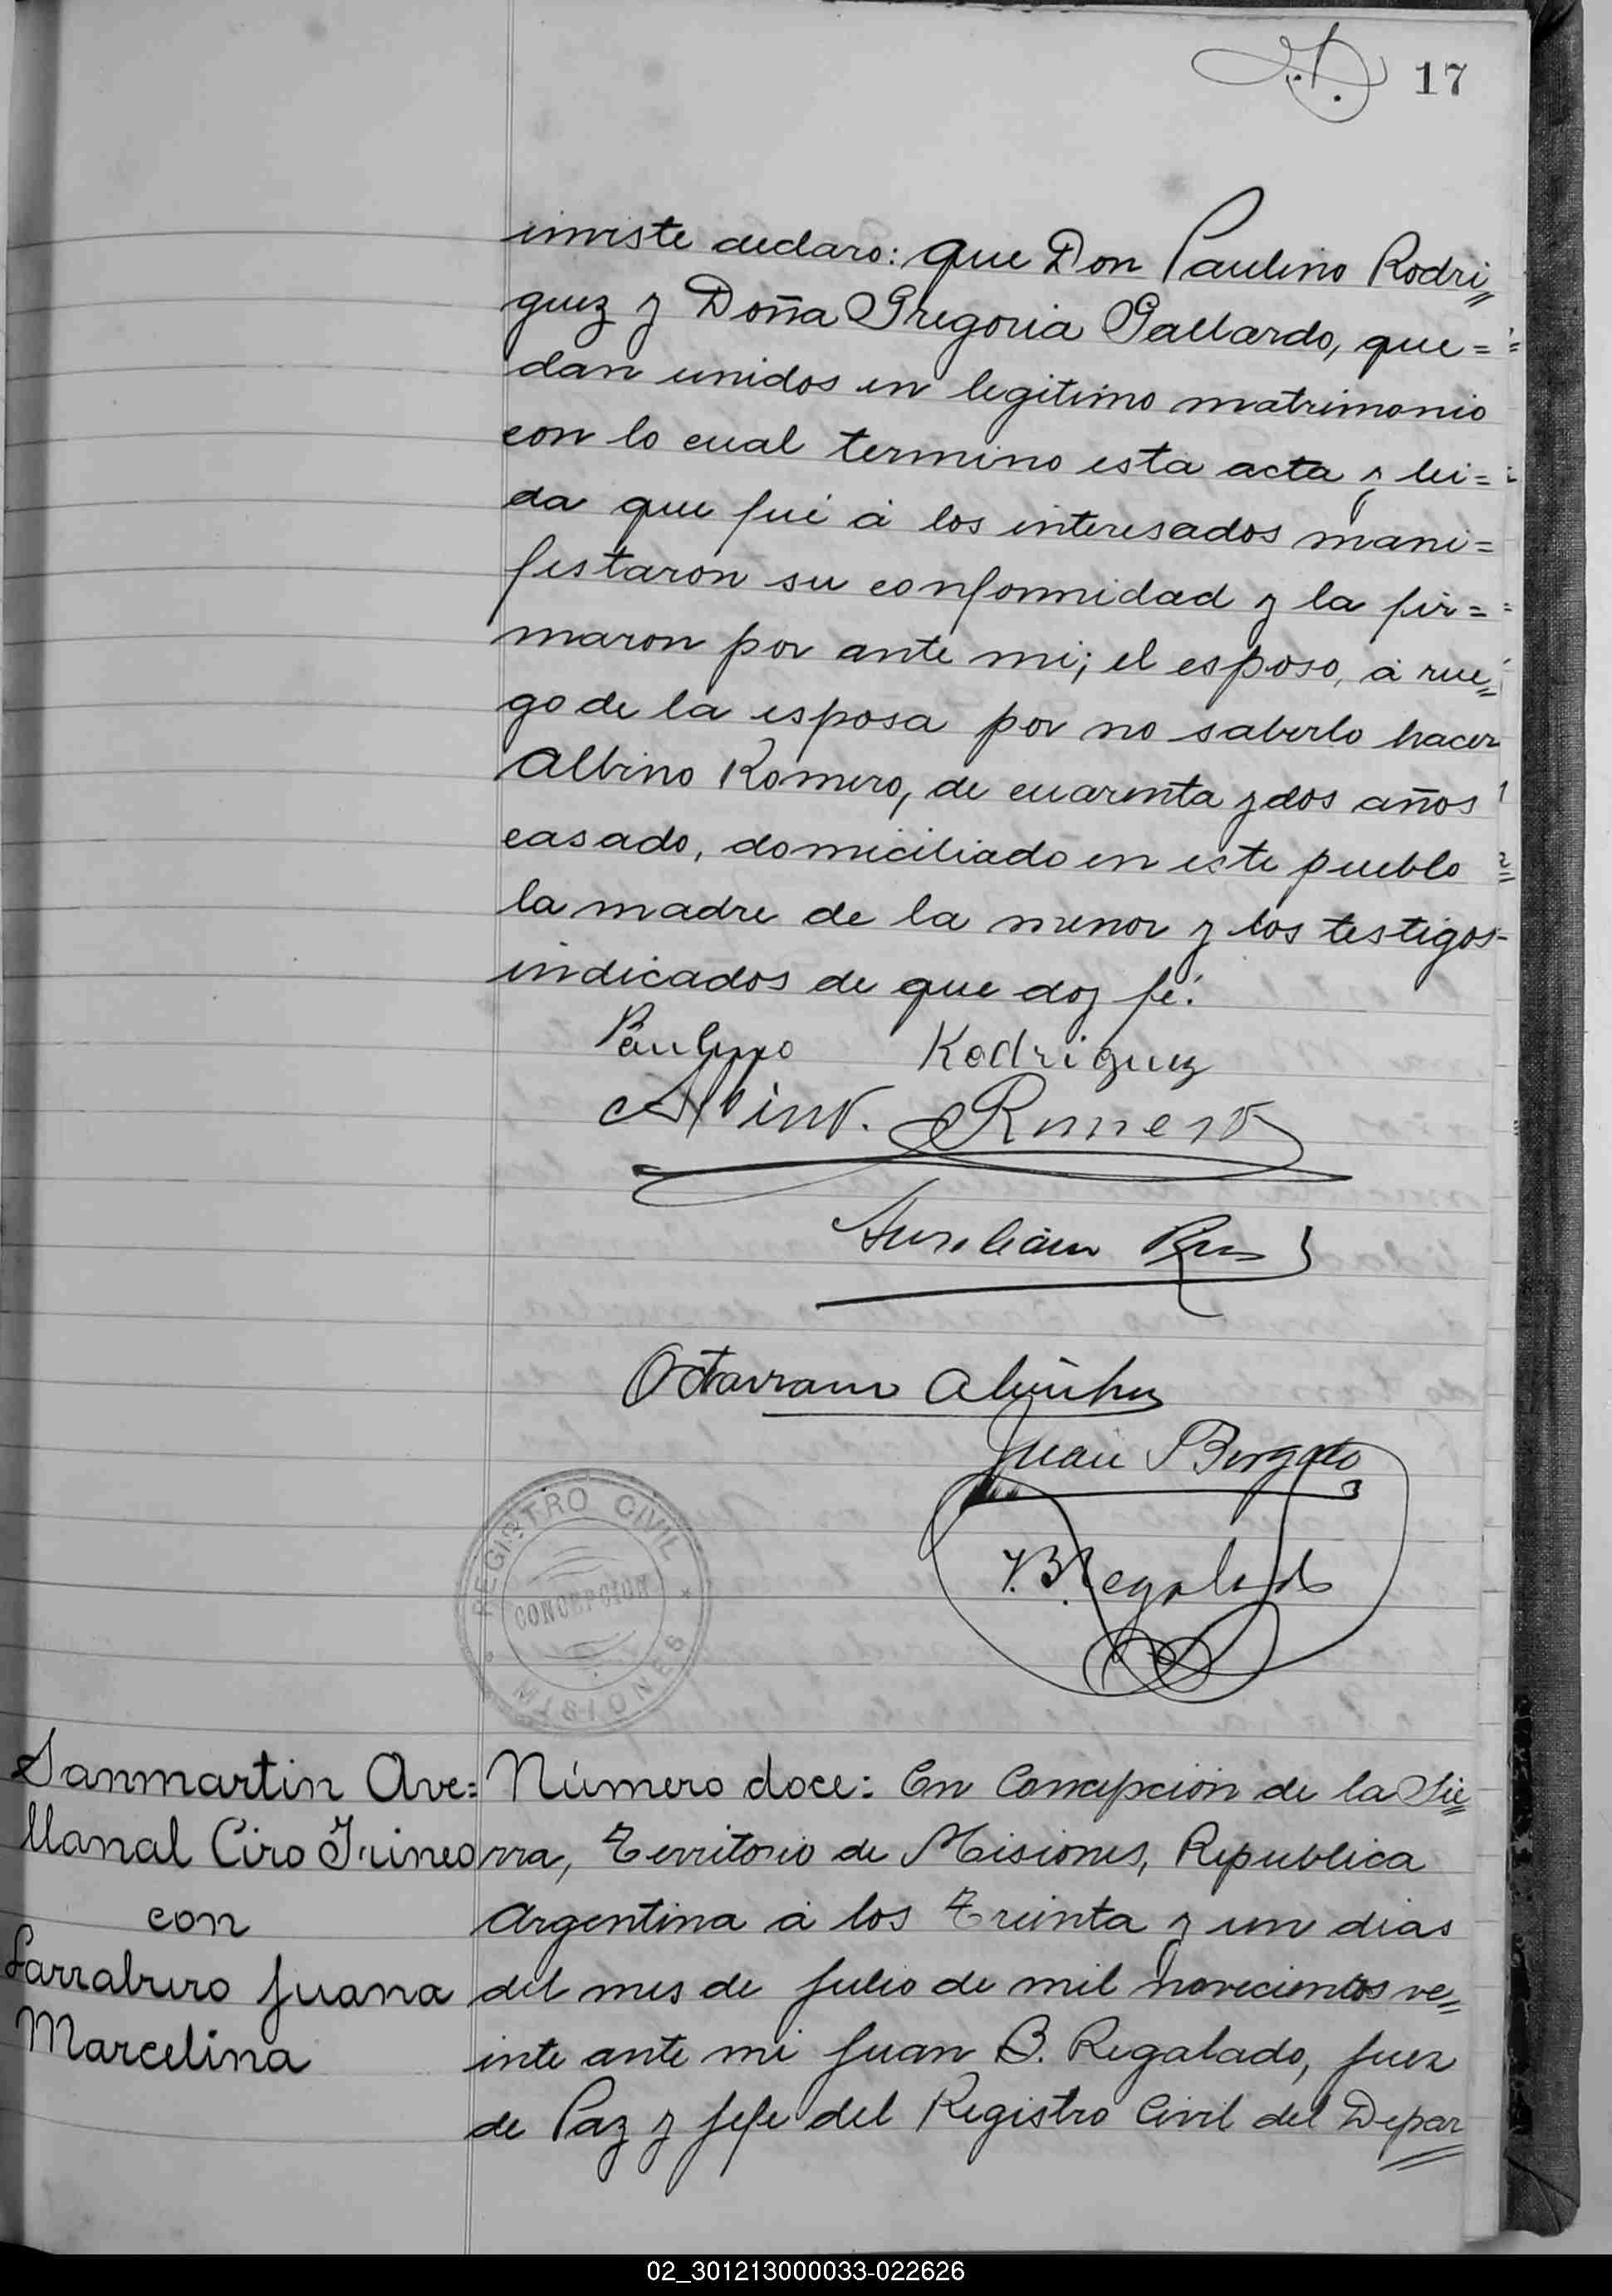 17
inviste declaro: que Don Paulino Rodri=
guez y Doña Gregoria Gallardo, que=
dan unidos en legitimo matrimonio
con lo cual termino esta acta y lei=
da que fué á los interesados mani=
festaron su conformidad y la fir=
maron por ante mi; el esposo, á rue=
go de la esposa por no saberlo hacer
Albino Romero, de cuarenta y dos años
casado, domiciliado en este pueblo
la madre de la menor y los testigos-
indicados de que doy fé.
Paulino Rodriguez
Albino. Romero
Aureliano
Octaviano
Juan
J. B. Regalado
REGISTRO CIVIL
CONCEPCION
MISIONES
Sanmartin Ave=
llanal Ciro Irineo
con
Larraburo Juana
Marcelina
Número doce: En Concepción de la Sie=
rra, Territorio de Misiones, Republica
Argentina á los treinta y un dias
del mes de Julio de mil novecientos ve=
inte ante mi Juan B. Regalado, Juez
de Paz y Jefe del Registro Civil del Depar=
02_301213000033-022626